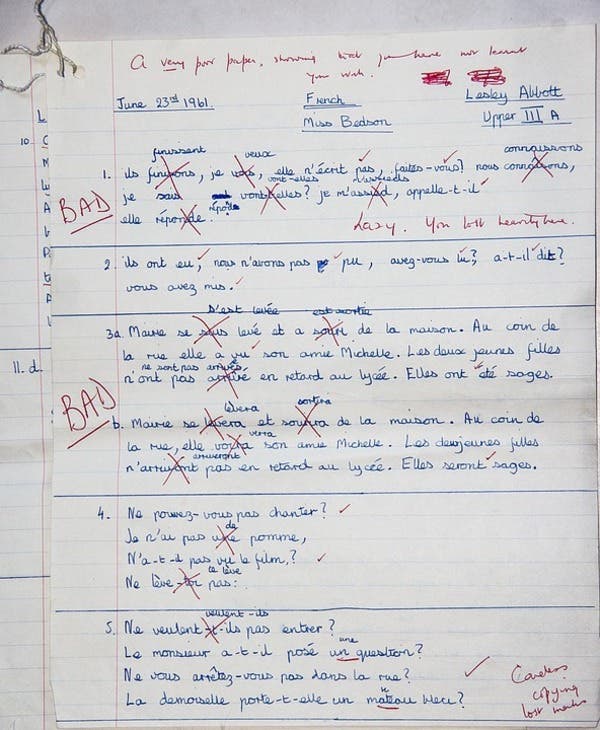 A very poor paper, showing that you have not learnt
your work.
June 23rd 1961.
French
Lesley Abbott
Miss Bedson
Upper III A
finissent
veux
connaissons
1. ils finissons, je vous, elle n'écrit pas, faites-vous? nous connaitrons,
vont-elles
m'assieds
je suis vont-elles? je m'assied, appelle-t-il
BAD
répond
elle réponde.
Lazy. You lost heavily here.
2. ils ont eu, nous n'avons pas pu, avez-vous lu? a-t-il dit?
vous avez mis.
s'est levée
est sortie
3a Marie se suis levé et a sorti de la maison. Au coin de
la rue elle a vu son amie Michelle. Les deux jeunes filles
ne sont pas arrivées
n'ont pas arrivé en retard au lycée. Elles ont été sages.
BAD
lèvera
sortira
b. Marie se levera et sortira de la maison. Au coin de
verra
la rue, elle voira son amie Michelle. Les deux jeunes filles
arriveront
n'arrivont pas en retard au lycée. Elles seront sages.
4. Ne pouvez-vous pas chanter?
de
Je n'ai pas une pomme,
N'a-t-il pas vu le film?
te lève
Ne lève-toi pas:
veulent-ils
5. Ne veulent-t-ils pas entrer?
une
Le monsieur a-t-il posé un question?
Ne vous arrêtez-vous pas dans la rue?
La demoiselle porte-t-elle un mateau bleu?
Careless
copying
lost marks
10
11. d.